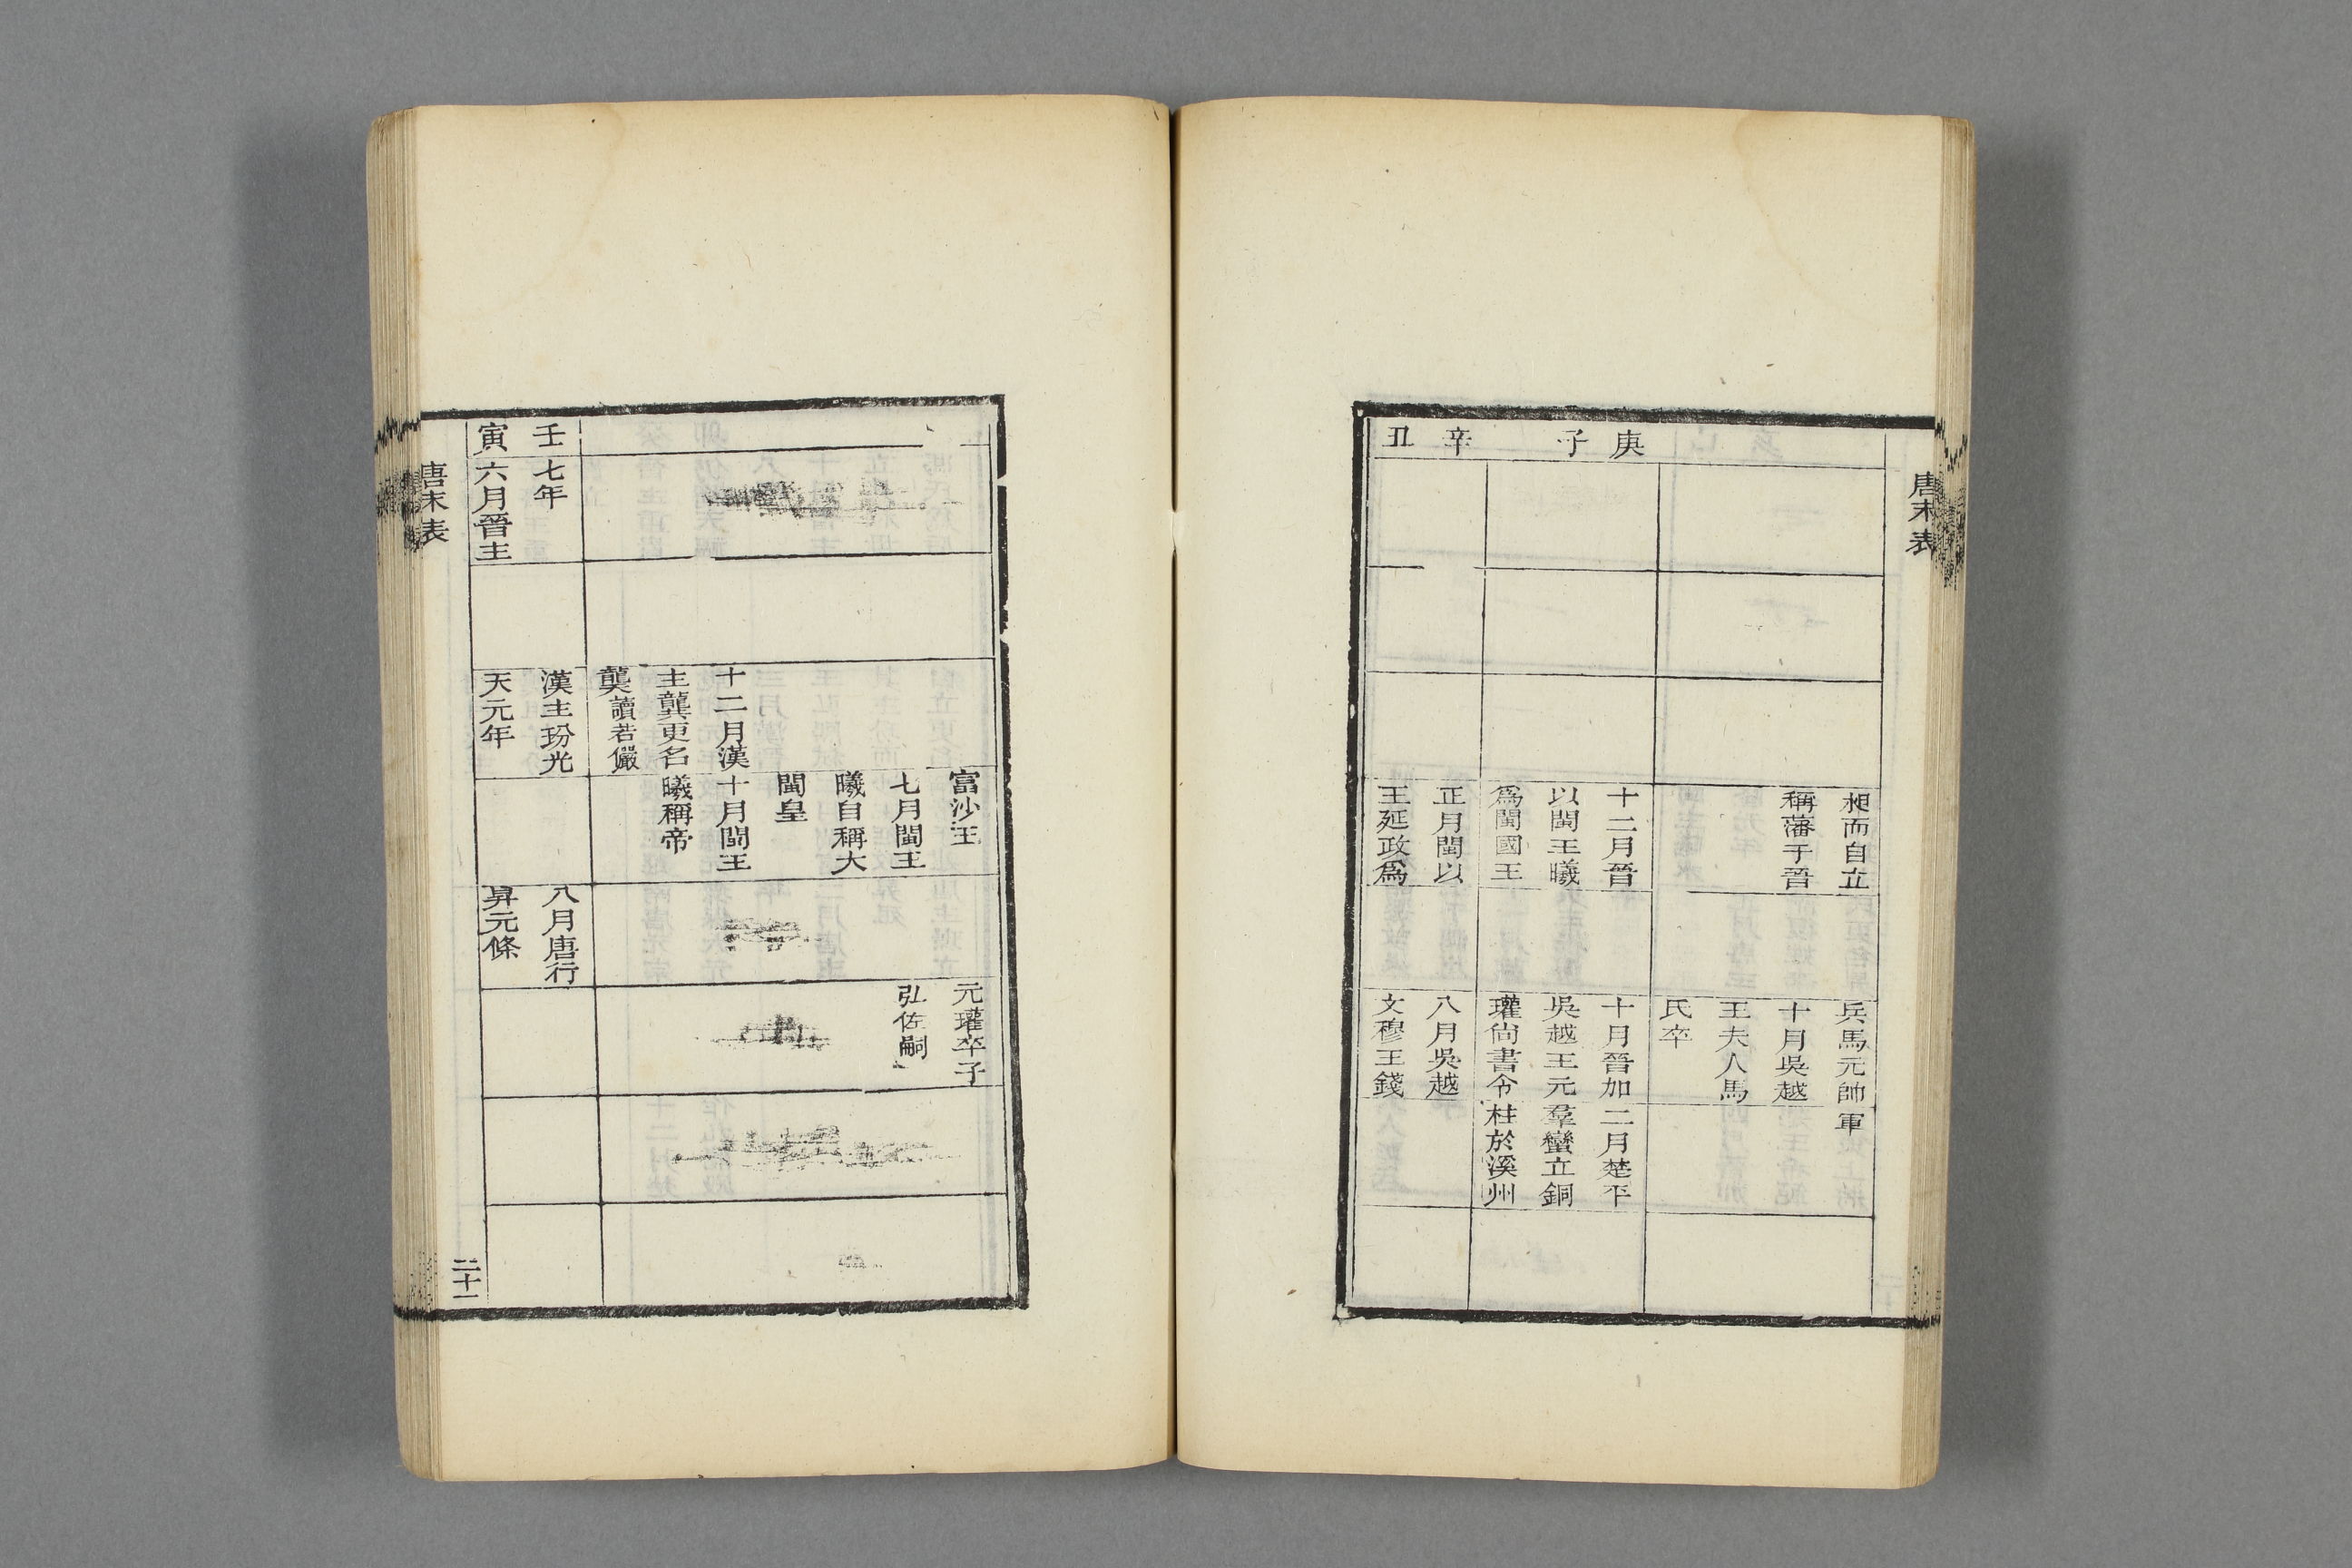 唐末表
昶而自立
稱藩于晉
兵馬元帥
十月吳越
王夫人馬
氏卒
軍
庚子
十二月晉
以閩王曦
爲閩國王
十月晉加
吳越王元
瓘尙書令
二月楚平
羣蠻立銅
柱於溪州
辛丑
正月閩以
王延政爲
八月吳越
文穆王錢
富沙王
七月閩王
曦自稱大
閩皇
十月閩王
曦稱帝
十二月漢
主龔更名
龑讀若儼
元瓘卒子
弘佐嗣
壬寅
七年
六月晉主
漢主玢光
天元年
八月唐行
昇元條
唐末表
二十一